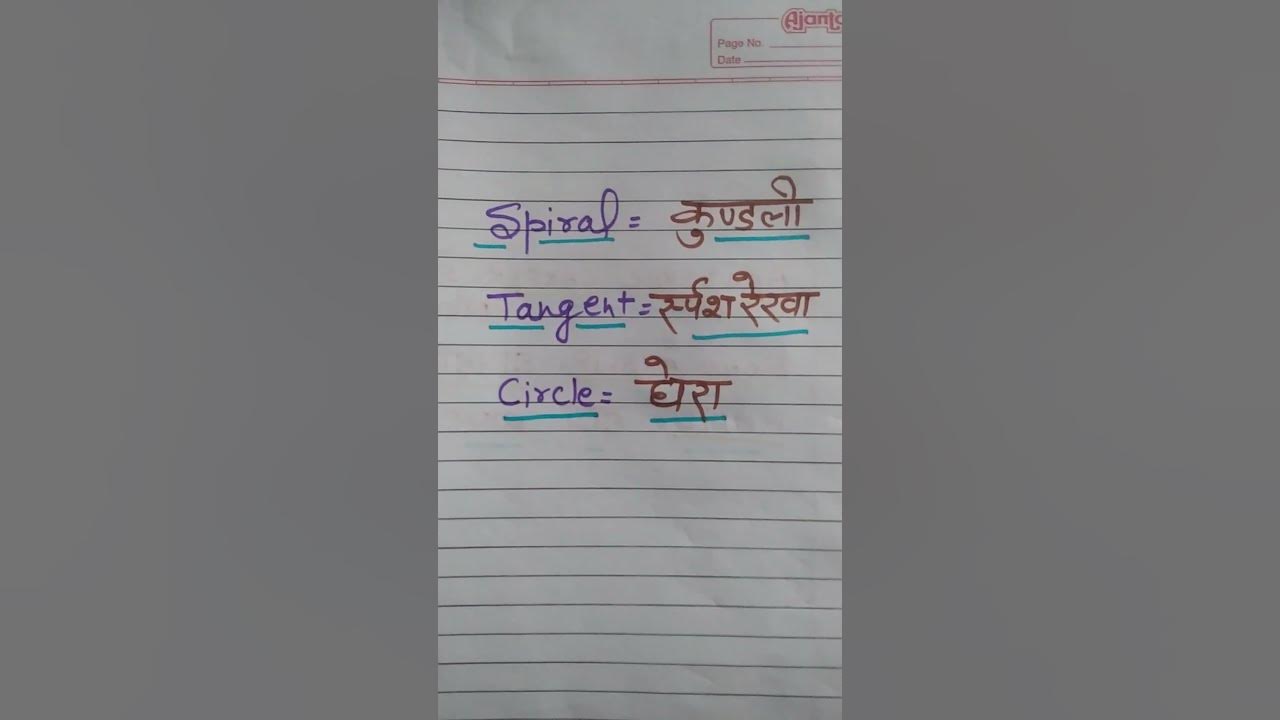 Ajanta
Page No.
Date
Spiral = कुण्डली
Tangent = र्स्पश रेखा
Circle = घेरा